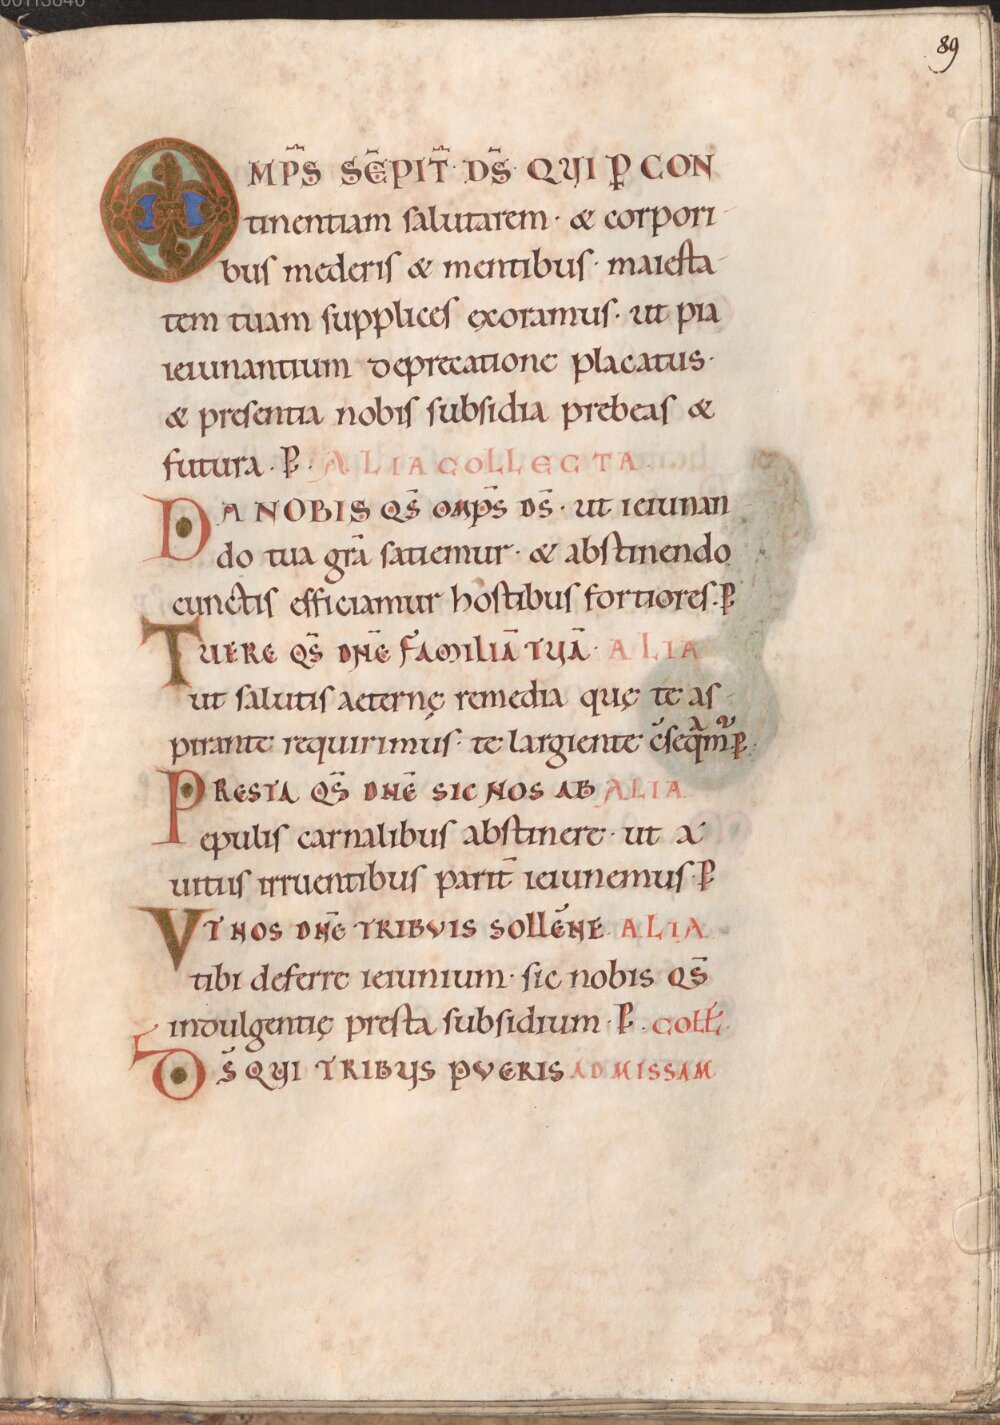 89
OMP̅S SE̅PIT̅· DS̅· QUI P̲ CON
tinentiam salutarem· & corpori
bus mederis & mentibus· maiesta
tem tuam supplices exoramus· ut pia
ieiunantium deprecatione placatus·
& presentia nobis subsidia prebeas &
futura· P̲· ALIA COLLECTA·
DA NOBIS QS̅ OMP̅S DS̅· ut ieiunan
do tua gra̅ satiemur· & abstinendo
cunctis efficiamur hostibus fortiores·P̲
TUERE QS̅ DNE̅ FAMILIA̅ TUA̅· ALIA
ut salutis aeternę remedia quę te as
pirante requirimus· te largiente c̅seqᵃmᷣ P̲·
PRESTA QS̅ DNE̅ SIC NOS AB ALIA
epulis carnalibus abstinere· ut a
uitiis irruentibus parit̅ ieiunemus· P̲
VT NOS DNE̅ TRIBVIS SOLLE̅NE ALIA
tibi deferre ieiunium· sic nobis QS̅
indulgentię presta subsidium· P̲· COLL̅·
DS̅ QUI TRIBUS PVERIS AD MISSAM